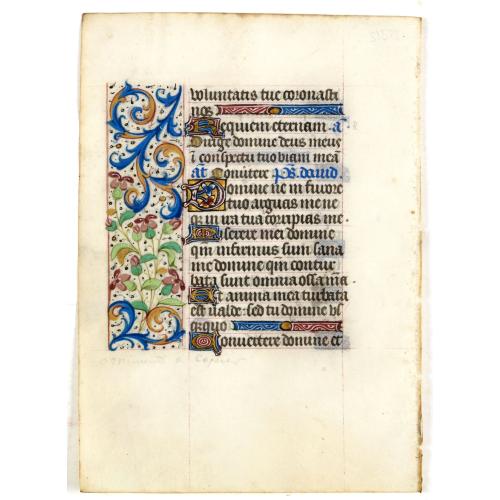 voluntatis tue coronasti
nos
Requiem eternam. a͞
Dirige domine deus meus
ī conspectu tuo viam meā
añ Conūtere. ps. david.
Domine ne in furore
tuo arguas me ne
q in ira tua corripias me.
Miserere mei domine
qm̄ infirmus sum sana
me domine qm̄ contur
bata sunt omnia ossa m̄a
Et anima mea turbata
est valde: sed tu domine vs
q̄quo
Convertere domine et